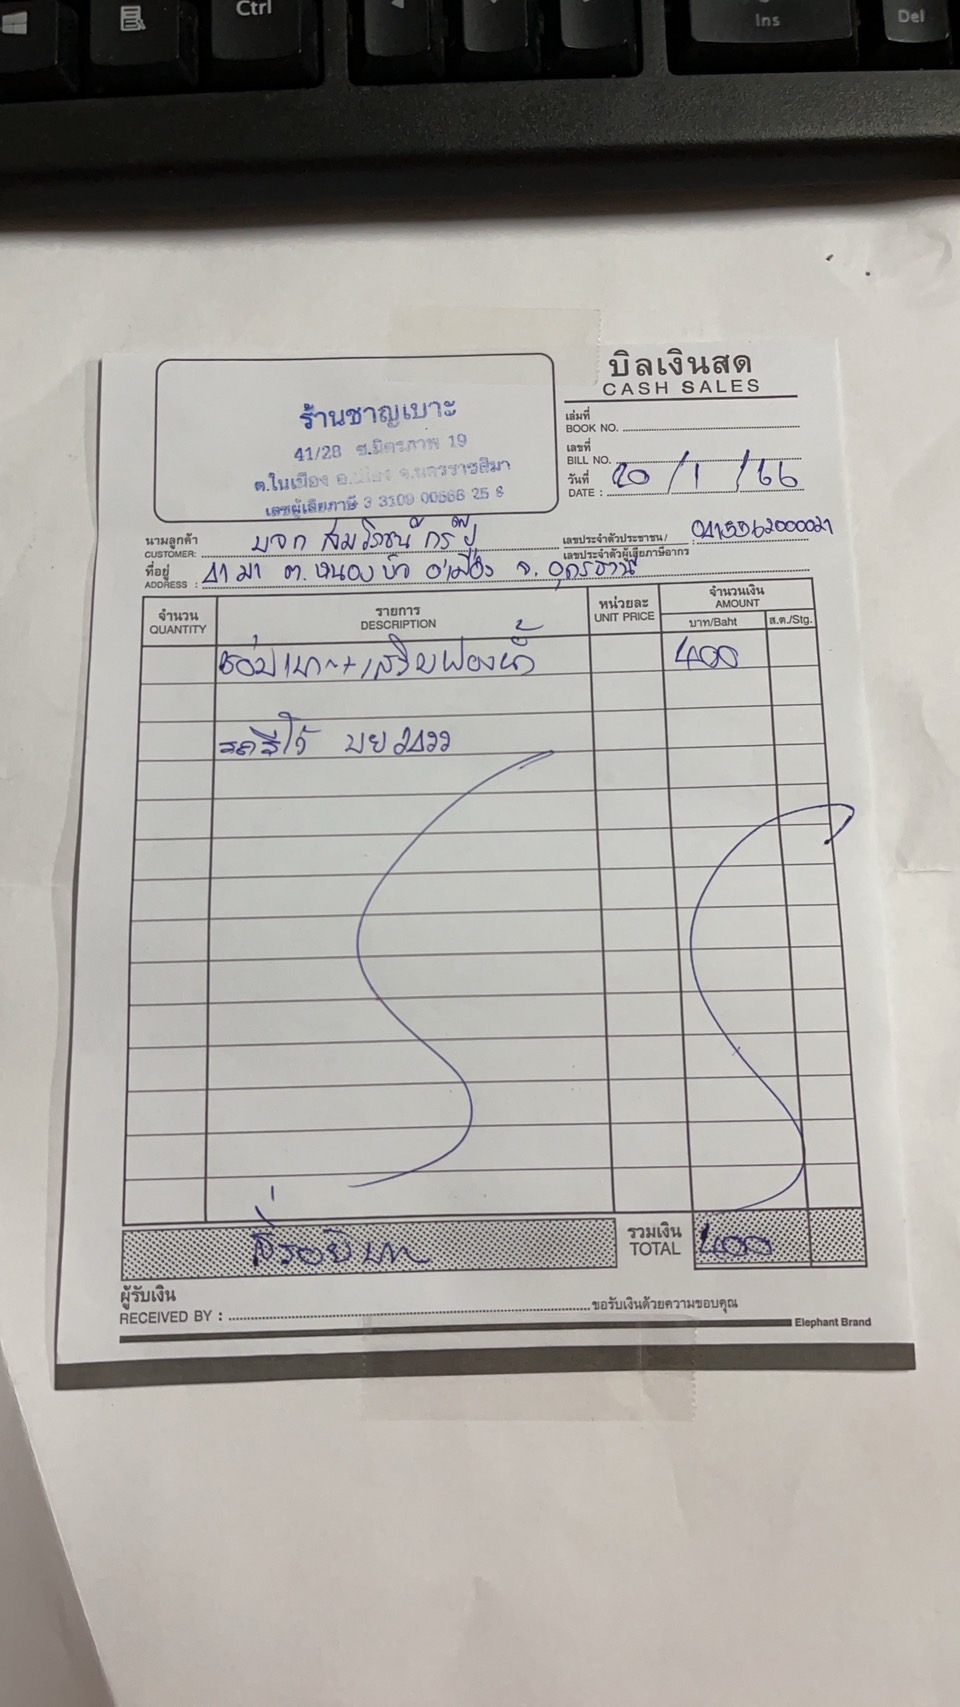 Ctrl
Ins
Del
บิลเงินสด
CASH SALES
ร้านชาญเบาะ
41/28 ซ.มิตรภาพ 19
ต.ในเมือง อ.เมือง จ.นครราชสีมา
เลขผู้เสียภาษี 3 3109 00566 25 8
เล่มที่
BOOK NO.
เลขที่
BILL NO.
วันที่
DATE : 20/1/66
นามลูกค้า
CUSTOMER: บจก สมวิชชน์ กรุ๊ป
เลขประจำตัวประชาชน/
เลขประจำตัวผู้เสียภาษีอากร 0415562000021
ที่อยู่
ADDRESS : ต.หนองบัว อ.เมือง จ.อุดรธานี
จำนวน
QUANTITY
รายการ
DESCRIPTION
หน่วยละ
UNIT PRICE
จำนวนเงิน
AMOUNT
บาท/Baht
ส.ต./Stg.
ซ่อมเบาะ+เสริมฟองน้ำ 400
บย 2499
สี่ร้อยบาท
รวมเงิน
TOTAL 400
ผู้รับเงิน
RECEIVED BY :
ขอรับเงินด้วยความขอบคุณ
Elephant Brand